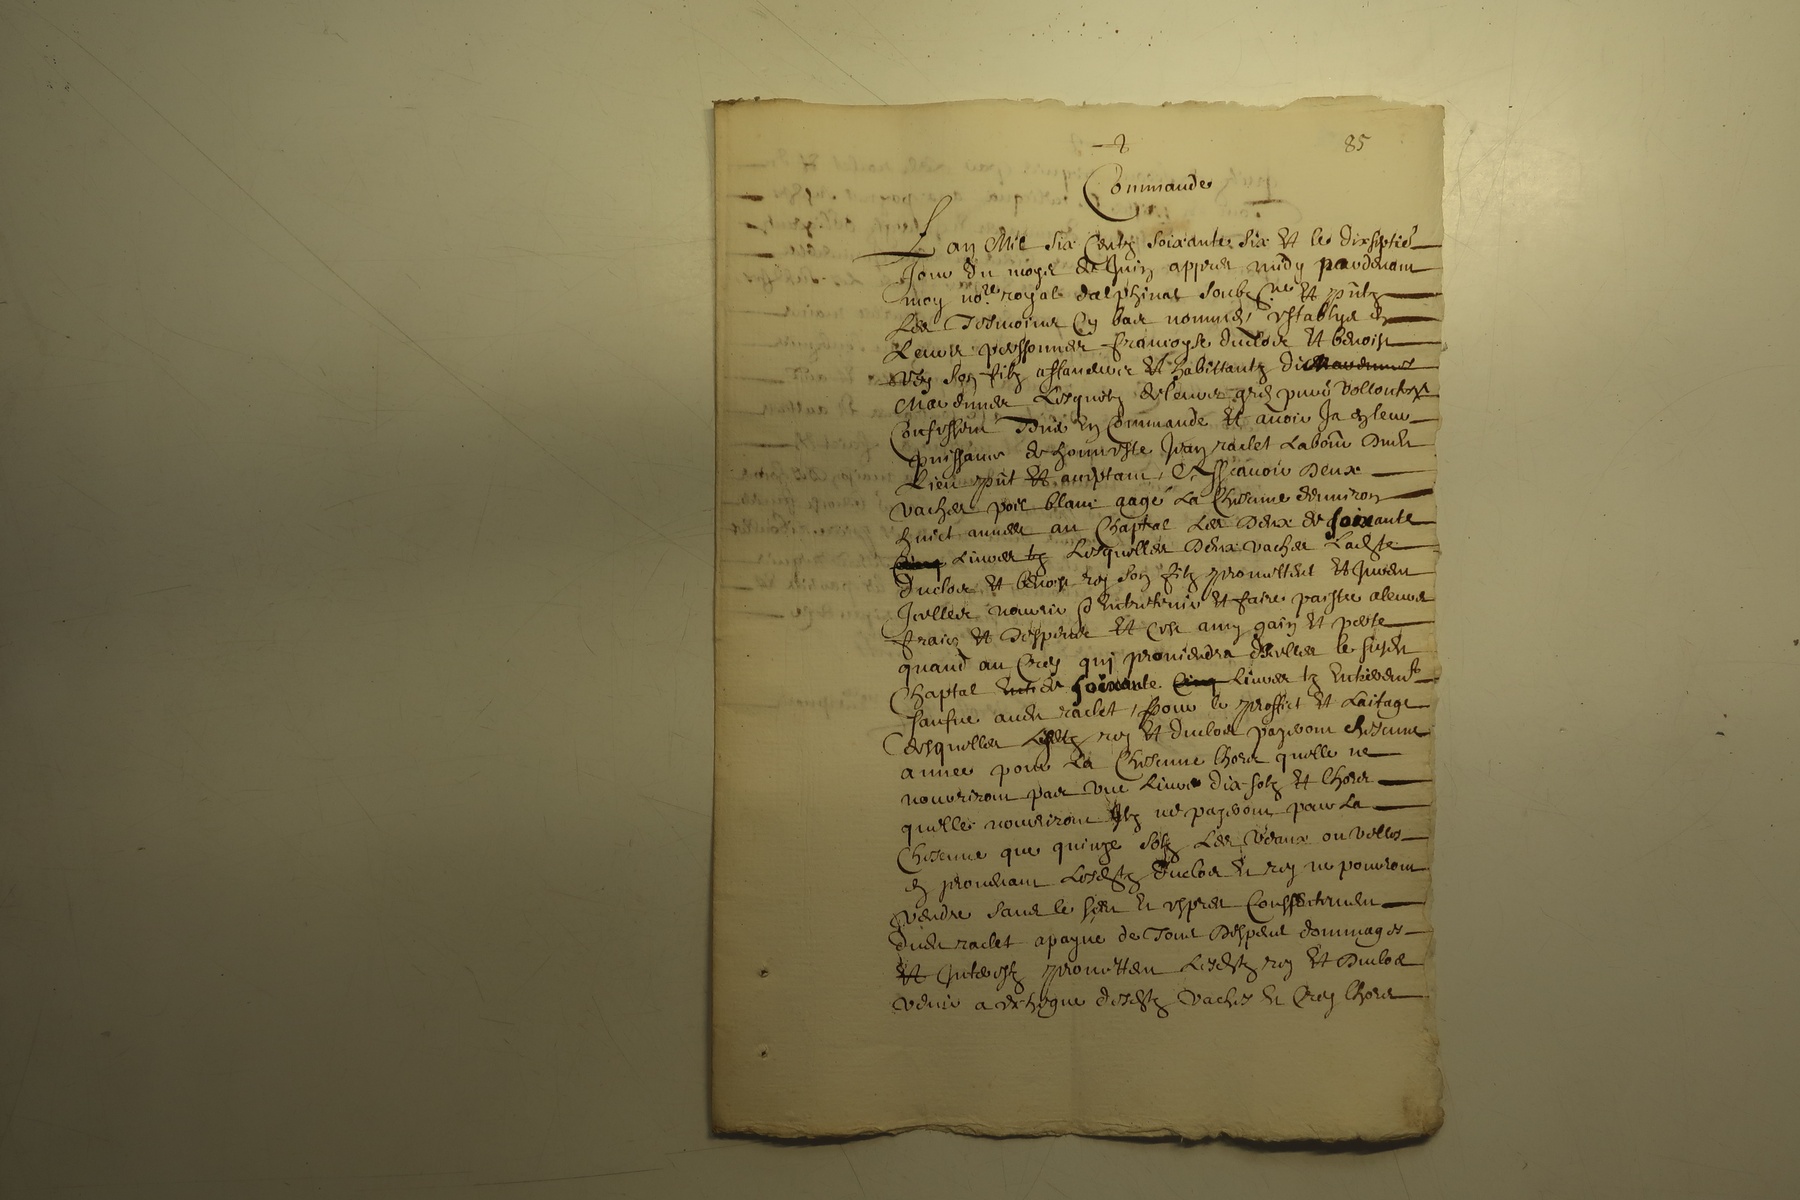 85
Commande
L'an Mil six Centz soixante six Et le dixseptie
Jour du moys de Juin appres midy pardevant
moy no.re royal dalphinal soubz.ne Et pntz
Les Tesmoins Cy bas nommes establys en
Leurs perssonnes francoyse duclos Et benoist
rey son filz affaneurs Et habittantz
Lesquelz de leurs gres pures Vollontes
Confessent Tenir En Commande Et avoir Ja en leur
puissance de honneste Jean raclet Labour Dudt
Lieu pnt Et acceptant, Assavoir Deux
vaches poil blanc aage La Chescune denviron
huict annees au Chaptal Les Deux de soixante
Livres tz Lesquelles Deux vaches Ladste
duclos Et benoist rey son filz promettent Et Jurent
Jcelles nourir Entretenir Et faire paistre a leurs
fraiz Et Despens Et Est a my gain Et perte
quand au Croy qui proviendra dicelles le susdt
Chaptal soixante Livres tz Entierement
saufve audt raclet, pour le proffict Et Laitage
desquelles Lesdtz rey Et duclos payeront chescune
annee pour La Chescune Lhors quelle ne
nourriront pas une Livre dix solz Et Lhors
quelles nouriront Ilz ne payeront pour La
Chescune que quinze solz Les Veaux ou velles
En provenant Lesdtz duclos Et rey ne pourront
vendre sans le sceu Et expres Conssentement
dudt raclet a payne de Tous Despens dommages
Et Interestz promettent Lesdtz rey Et Duclos
venir a Exhigue desdtz vaches Et Croy Lhors